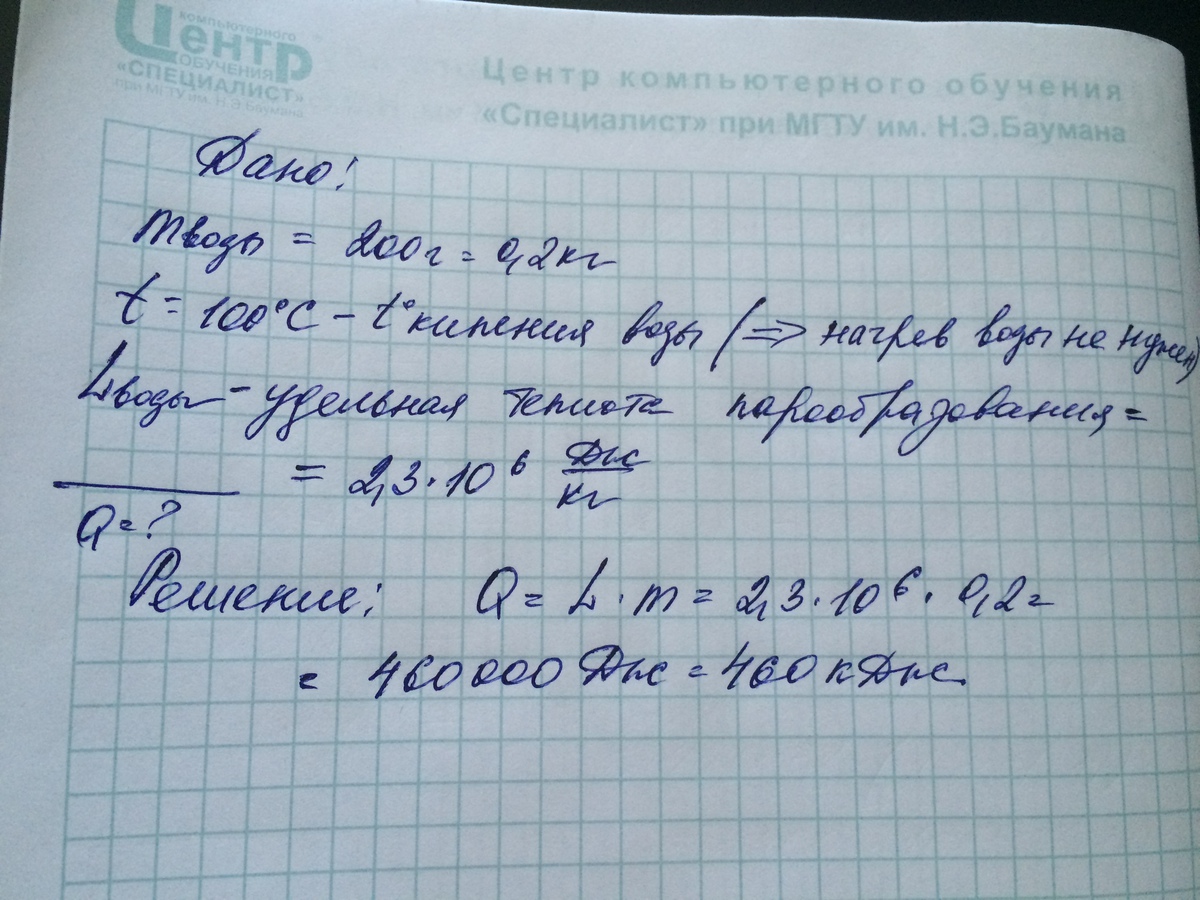 компьютерного
Центр
ОБУЧЕНИЯ
«СПЕЦИАЛИСТ»
при МГТУ им. Н.Э.Баумана
Центр компьютерного обучения
«Специалист» при МГТУ им. Н.Э.Баумана
Дано:
mводы = 200г = 0,2кг
t = 100°C – t° кипения воды (=> нагрев воды не нужен)
Lводы – удельная теплота парообразования =
= 2,3·10⁶ Дж/кг
Q = ?
Решение: Q = L·m = 2,3·10⁶·0,2 =
= 460000 Дж = 460 кДж